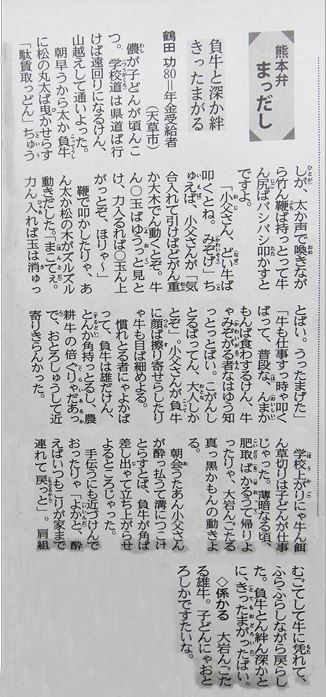 熊本弁
まっだし
負牛と深か絆
きったまがる
鶴田 功 80＝年金受給者
（天草市）
儂が子どんが頃んこ
つ。学校道は県道ば行
けば遠回りになるけん、
山越えして通いよった。
朝早うから太か負牛
に松の丸太ば曳かせらす
「駄賃取っどん」ちゅう
しが、太か声で喚きなが
ら竹ん鞭ば持っとって牛
ん尻ばバシバシ叩かすと
ですよ。
「小父さん、どがん牛ば
叩くとね。みぞげ」ち
ゆえば、小父さんが「気
合入れて引けばどがん重
か大木でん動くとぞ。牛
ん〇玉ばゆうっと見と
け、力入るれば〇玉ん上
がっとぞ、ほりゃ～」
鞭で叩かしたりゃ、あ
ん太か松の木がズルズル
動きだした。「まこてぇ。
力ん入れば玉は消ゆっ
とばい。うったまげた」
「牛も仕事すっ時ゃ叩く
ばって、普段な、んまか
もんば食わするけん、牛
ゃみぞがる者なはゆう知
っとっとばい。こがんし
とるばってん、大人しか
とぞ」。小父さんが負牛
に顔ば擦り寄せらしたり
ゃ牛も目ば細めよる。
慣れとる者にゃよかば
って、負牛は雄だけん、
とんか角持っとるし、農
耕牛の倍ぐりゃだあっ
で、おとろしゅうして近
寄りきらんかった。
学校上がりにゃ牛ん餌
ん草切りは子どんが仕事
じゃった。薄暗なる頃、
肥取ばかるうて帰りよ
ったりゃ、大岩んごたる
真っ黒かもんの動きよる。
朝会うたあん小父さん
が酔っ払って溝につこけ
とらすとば、負牛が角ば
差し出ゃて立ち上がらせ
よるところじゃった。
手伝うにも近づけんで
おったりゃ「よかと、酔
えばいつもこりが家まで
連れて戻っと」。肩組
むごてして牛に凭れて、
ふらふらしながら戻らし
た。負牛とん絆ん深かと
に、きったまがったばい。
◇係かる 大岩んごた
る雄牛。子どんにゃおと
ろしかですたいな。